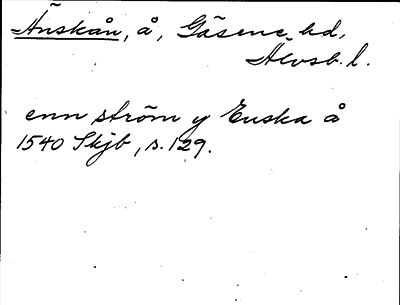 Änskån, å, Gäsene hd,
Älvsb. l.
enn ström y Enska å
1540 Skjb, s. 129.